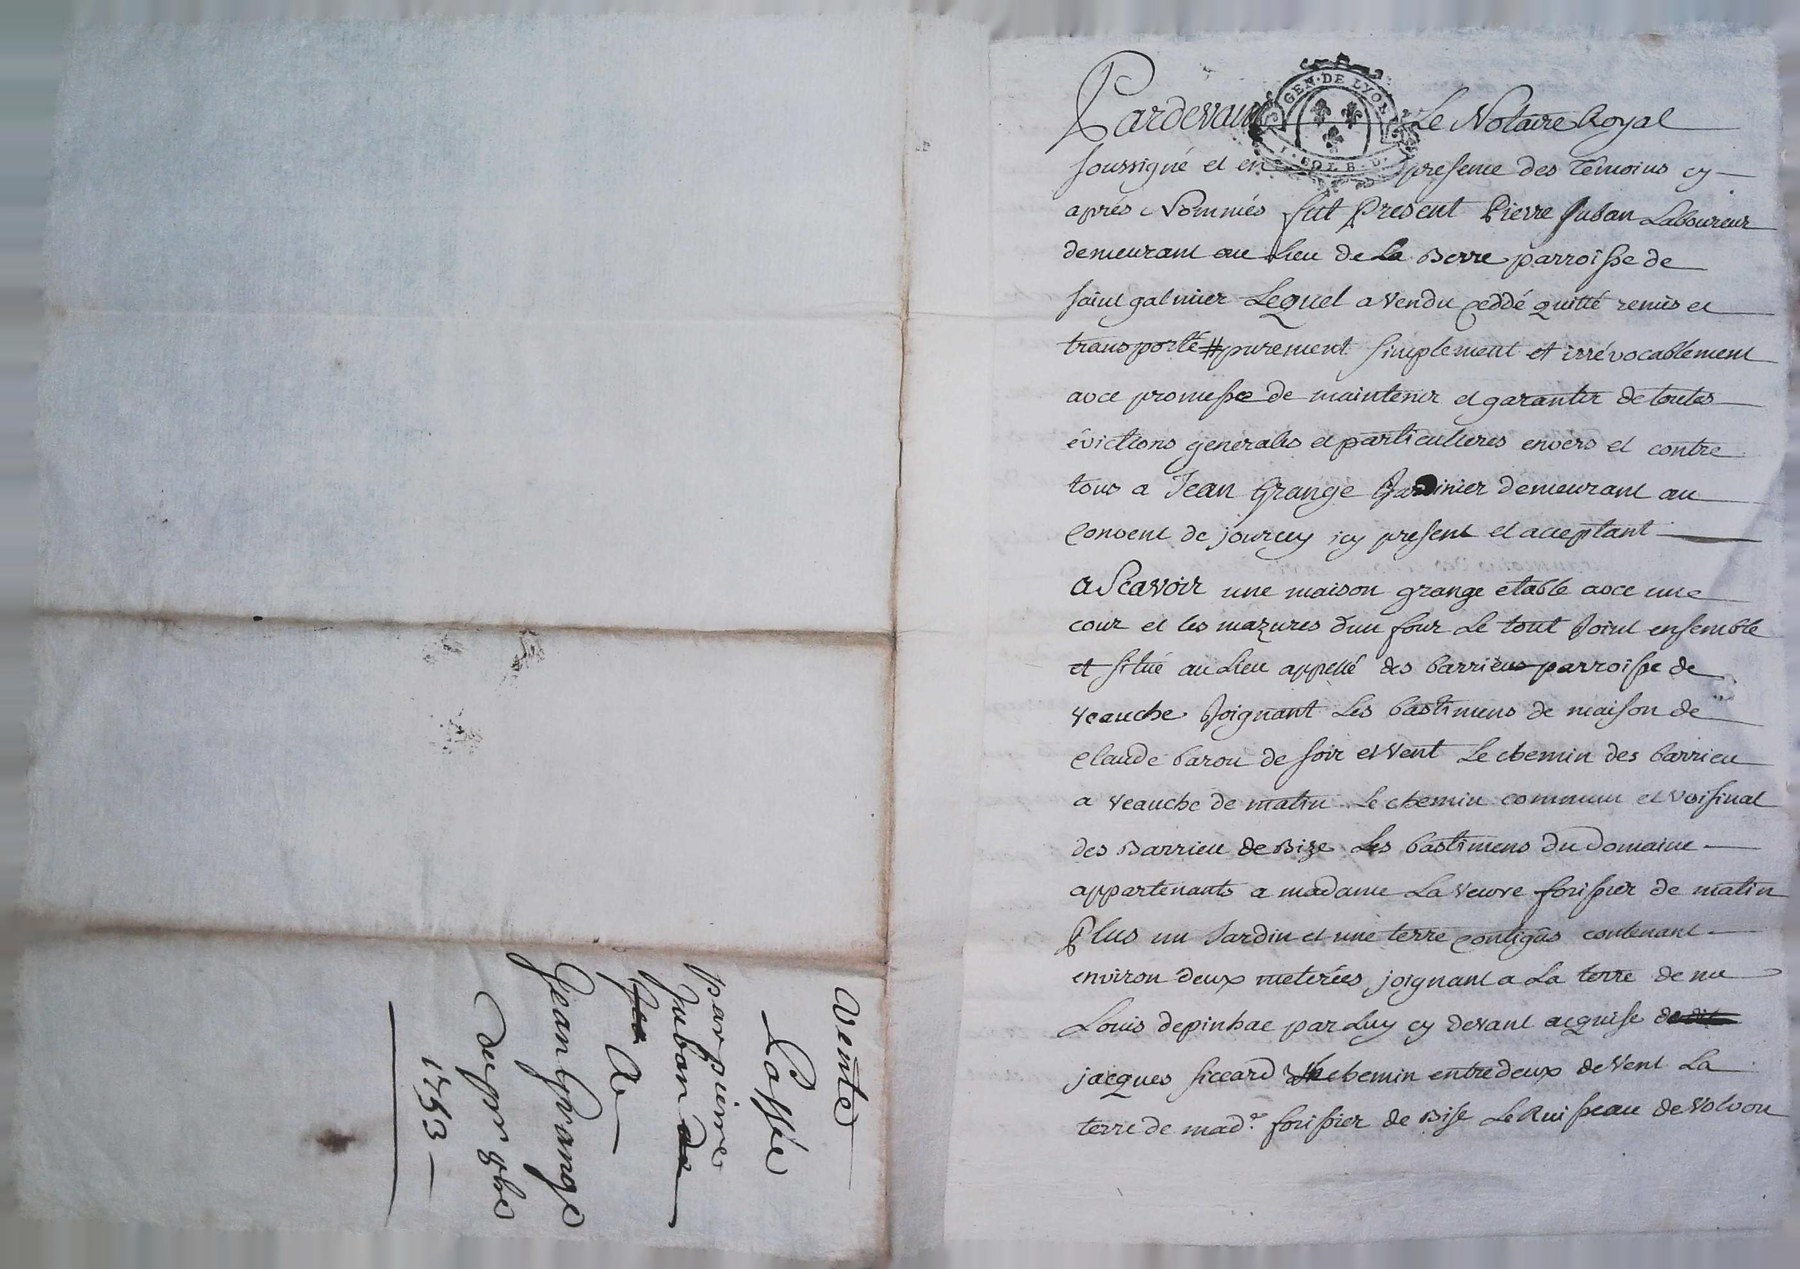 vente
Passée
par pierre
Juban de
A
Jean Grange
du pr 8bre
1753
GEN · DE LYON
Pardevant Le Notaire Royal
soussigné et en presence des témoins cy
aprés Nommés fut Present Pierre Juban Laboureur
demeurant au lieu de La Berre parroisse de
saint galmier Lequel a vendu ceddé quitté remis et
transporté # purement simplement et irrévocablement
avce promesse de maintenir et garantir de toutes
évictions generales et particulieres envers et contre
tous a Jean Grange Jardinier demeurant au
Convent de jourcey icy present et acceptant
A Scavoir une maison grange etable avce une
cour et les mazures d'un four Le tout Joint ensemble
et situé au Lieu appellé des barrieu parroisse de
veauche Joignant Les bastimens de maison de
Claude barou de soir et vent Le chemin des barrieu
a veauche de matin Le chemin commun et voisinal
des Barrieu de Bize Les bastimens du domaine
appartenants a madame La veuve forissier de matin
Plus un Jardin et une terre contigus contenant
environ deux meterées joignant a La terre de me
Louis depinhac par Luy cy devant acquise
jacques siccard chemin entredeux de vent La
terre de mad.e forissier de Bise Le Ruisseau de volvon